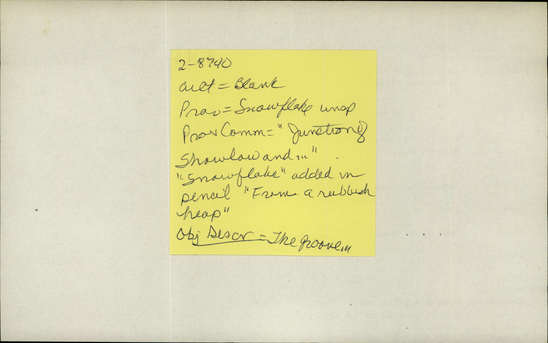 2-8740
Cult = Blank
Prov = Snowflake unsp
Prov Comm = "Junction of
Showlow and..."
"Snowflake" added in
pencil "From a rubbish
heap"
Obj Descr = The groove...